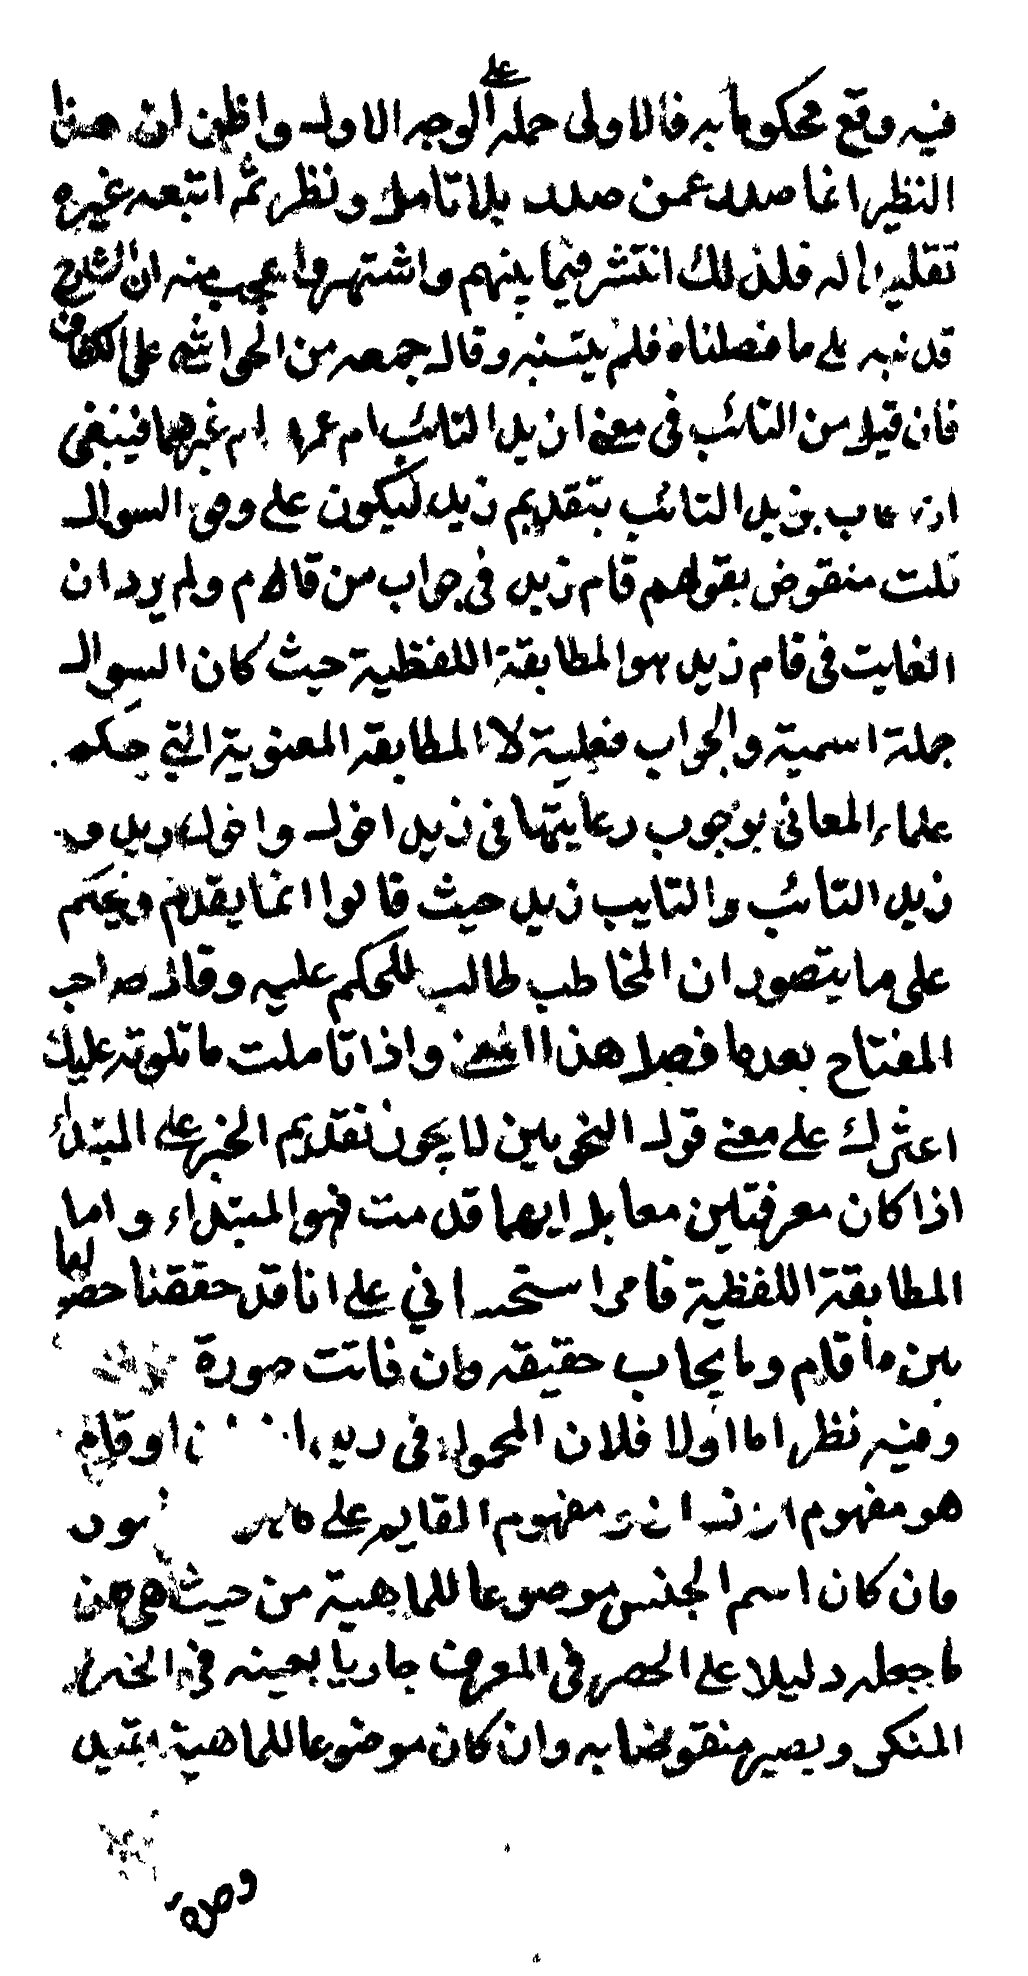 فيه وقع محكوما به فالاولى حمله على الوجه الاول واظن ان هذا
النظر انما صدر عمن صدر بلا تامل ونظر ثم اتبعه غيره
تقليدا له فلذلك انتشر فيما بينهم واشتهر واعجب منه ان الشارح
قد نبه على ما فصلناه فلم يتنبه وقال جمعه من الحواشى على الكشاف
فان قيل من التائب فى معنى ازيد التائب ام عمرو ام غيرهما فينبغى
ان يجاب بزيد التائب بتقديم زيد ليكون على وفق السوال
قلت منقوض بقولهم قام زيد فى جواب من قام ولم يرد ان
الغايت فى قام زيد هو المطابقة اللفظية حيث كان السوال
جملة اسمية والجواب فعلية لا المطابقة المعنوية التى حكم
علماء المعانى بوجوب رعايتها فى زيد اخوك واخوك زيد و
زيد التائب والتايب زيد حيث قالوا انما يقدم ويحكم
على ما يتصور ان المخاطب طالب للحكم عليه وقال صاحب
المفتاح بعدما فصل هذا المعنى واذا تاملت ما تلوته عليك
اعثرك على معنى قول النحويين لا يجوز تقديم الخبر على المبتداء
اذا كان معرفتين معا بل ايهما قدمت فهو المبتداء واما
المطابقة اللفظية فامر استحسانى على انا قد حققنا حصولها
بين من قام وما يجاب حقيقه وان فاتت صورة
وفيه نظر اما اولا فلان المحمول فى زيد او قام
هو مفهوم مفهوم القايم على
وان كان اسم الجنس موضوعا للماهية من حيث هى هى
ما جعله دليلا على الحصر فى المعرف جاريا بعينه فى الخبر
المنكر ويصير منقوضا به وان كان موضوعا للماهية بقيد
وحدة